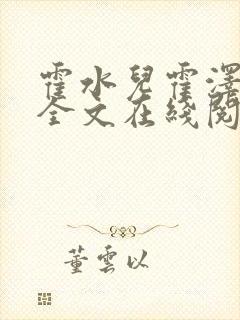 霍水兒霍澤
全文在綫閱
董雲以